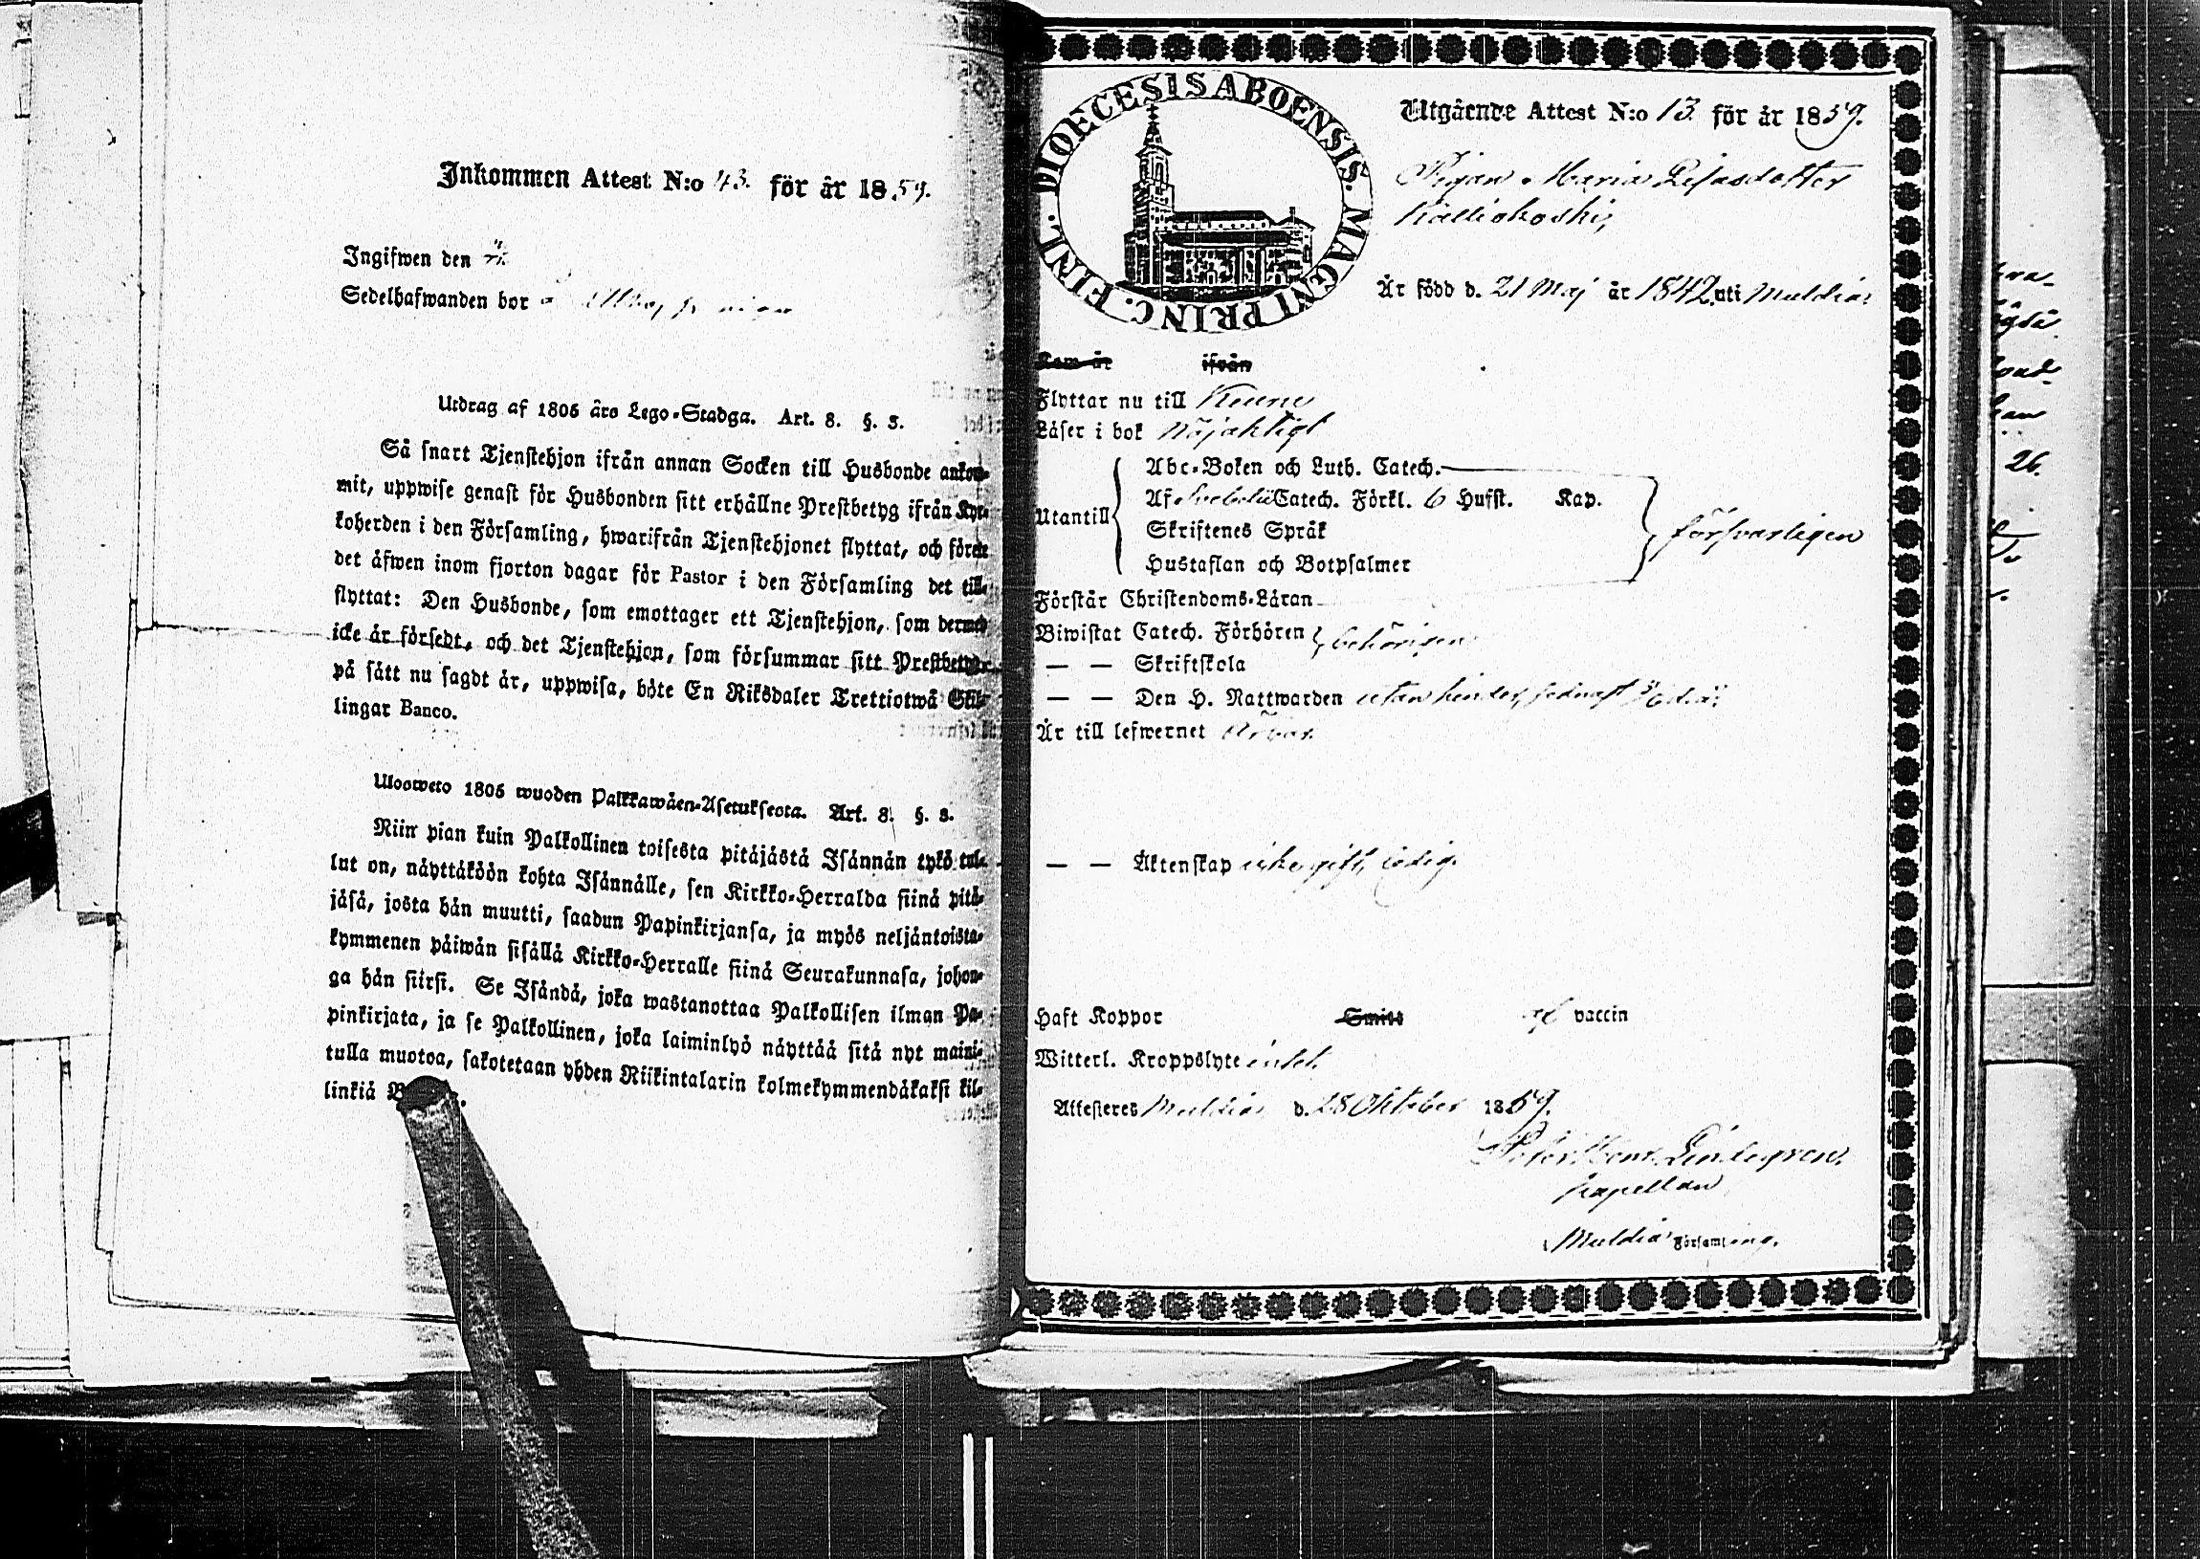 Inkommen Attest N:o 43. för år 1859.
Ingifwen den
Sedelhafwanden bor
Utdrag af 1805 års Lego-Stadga. Art. 8. §. 3.
Så snart Tjenstehjon ifrån annan Socken till Husbonde ankom-
mit, uppwise genast för Husbonden sitt erhållne Prestbetyg ifrån Kyr-
koherden i den Församling, hwarifrån Tjenstehjonet flyttat, och förete
det äfwen inom fjorton dagar för Pastor i den Församling det till-
flyttat: Den Husbonde, som emottager ett Tjenstehjon, som dermed
icke är försedt, och det Tjenstehjon, som försummar sitt Prestbetyg
på sätt nu sagdt är, uppwisa, böte En Riksdaler Trettiotwå Skil-
lingar Banco.
Ulosweto 1805 wuoden Palkkawäen-Asetuksesta. Art. 8. §. 3.
Niin pian kuin Palkollinen toisesta pitäjästä Isännän tykö tul-
lut on, näyttäköön kohta Isännälle, sen Kirkko-Herralda siinä pitä-
jäsä, josta hän muutti, saadun Papinkirjansa, ja myös neljäntoista-
kymmenen päiwän sisällä Kirkko-Herralle siinä Seurakunnasa, johon-
ga hän siirsi. Se Isändä, joka wastanottaa Palkollisen ilman Pa-
pinkirjata, ja se Palkollinen, joka laiminlyö näyttää sitä nyt maini-
tulla muotoa, sakotetaan yhden Riikintalarin kolmekymmendäkaksi kil-
linkiä
DIOECESIS ABOENSIS. MAGNI PRINC. FINL.
Utgående Attest N:o 13. för år 1859.
Pigan Maria Elisasdotter
Kalliokoski,
Är född d. 21 Maj år 1842 uti Muldia
Kom år ifrån
Flyttar nu till Keuru
Läser i bok Nöjaktigt
Utantill
Abc-Boken och Luth. Catech.
Af Svebelii Catech. Förkl. 6 Hufst. Kap.
Skriftenes Språk
Hustaflan och Botpsalmer
försvarligen
Förstår Christendoms-Läran
Biwistat Catech. Förhören behörigen
— — Skriftskola
— — Den H. Nattwarden utan hinder, sednast
Är till lefwernet ärbar.
— — Äktenskap icke gift, ledig.
Haft Koppor Smitt af vaccin
Witterl. Kroppslyte intet.
Attesteras Muldia d. 28 Oktober 1859.
Lindegren.
kapellan
Muldia Församling.
26.